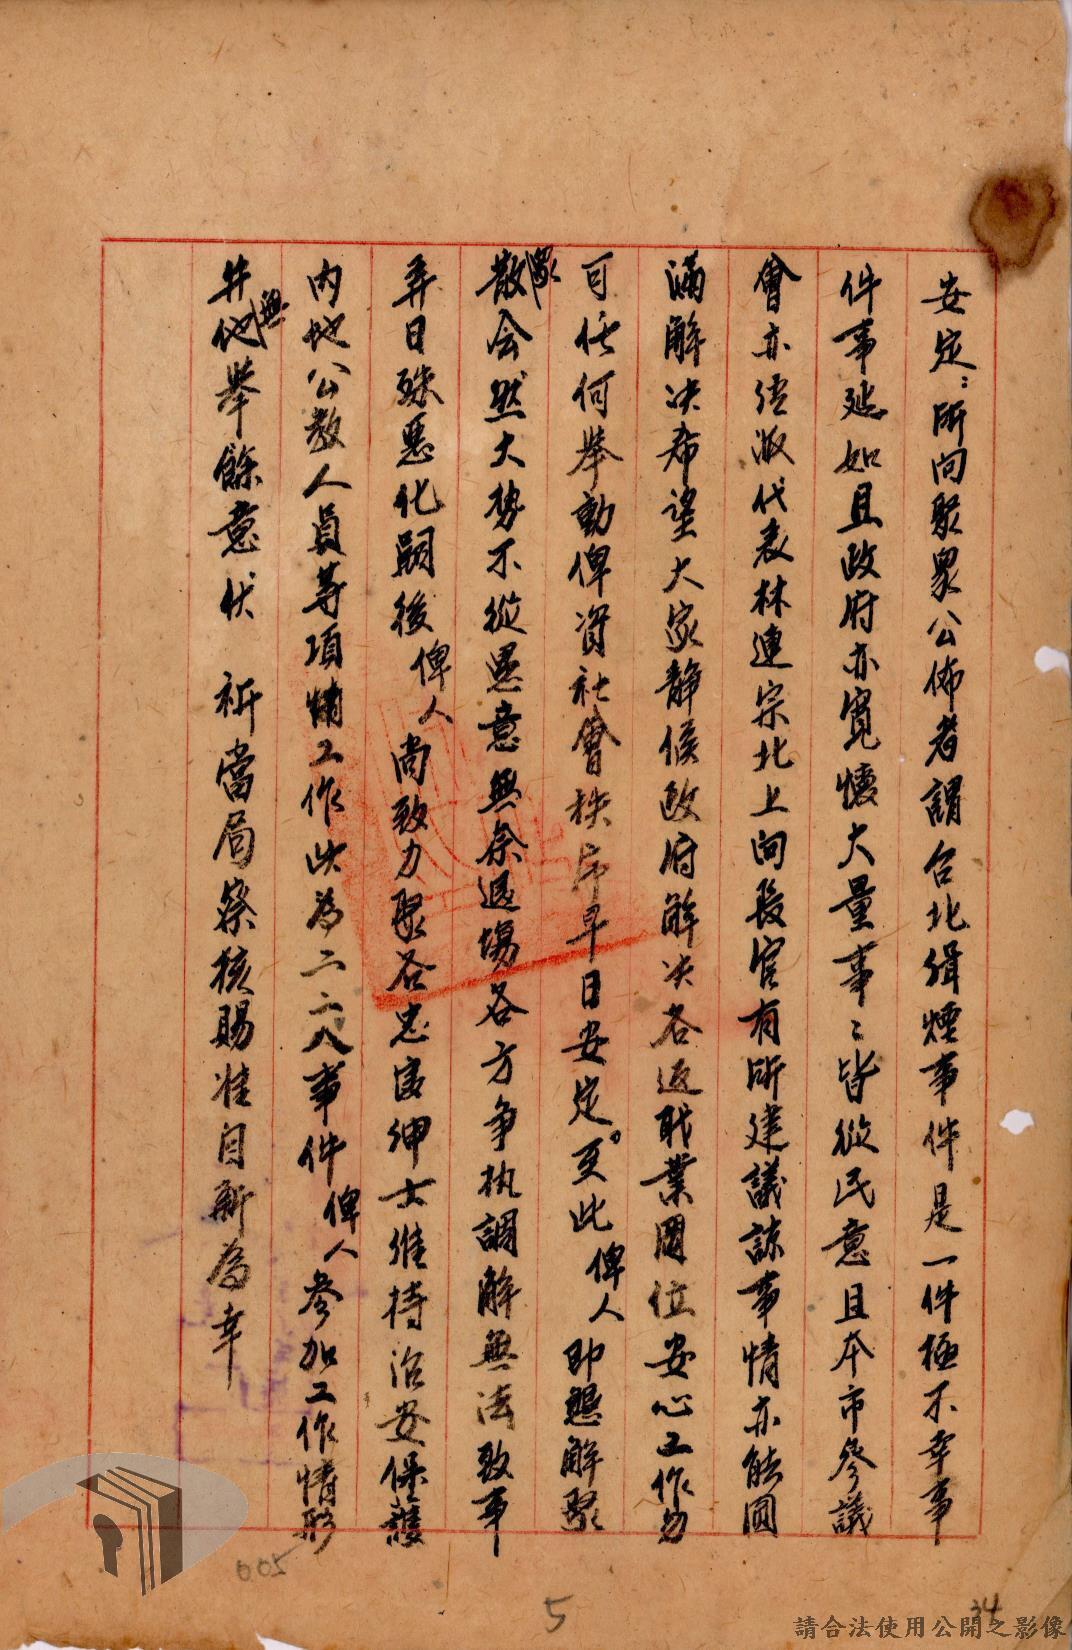 安定:所向眾公佈者謂台北緝煙事件是一件極不幸事
件事延如且政府亦寬懷大量事〻皆從民意且本市參議
會亦経派代表林連宗北上向長官有所建議諒事情亦能圓
滿解决希望大家静候政府解决各返职業囯位安心工作勿
可任何举動俾資社會秩序早日安定。至此俾人即懇解聚
眾散会然大势不從愚意與余退場各方争执調解無法致事
弄日殊惡化嗣後俾人尚致力聚各忠良紳士維持治安保護
内地公教人員等項情工作此為二二八事件俾人参加工作情形
並無他举餘意伏 祈當局察核賜准自新為幸
005
5
34
請合法使用公開之影像